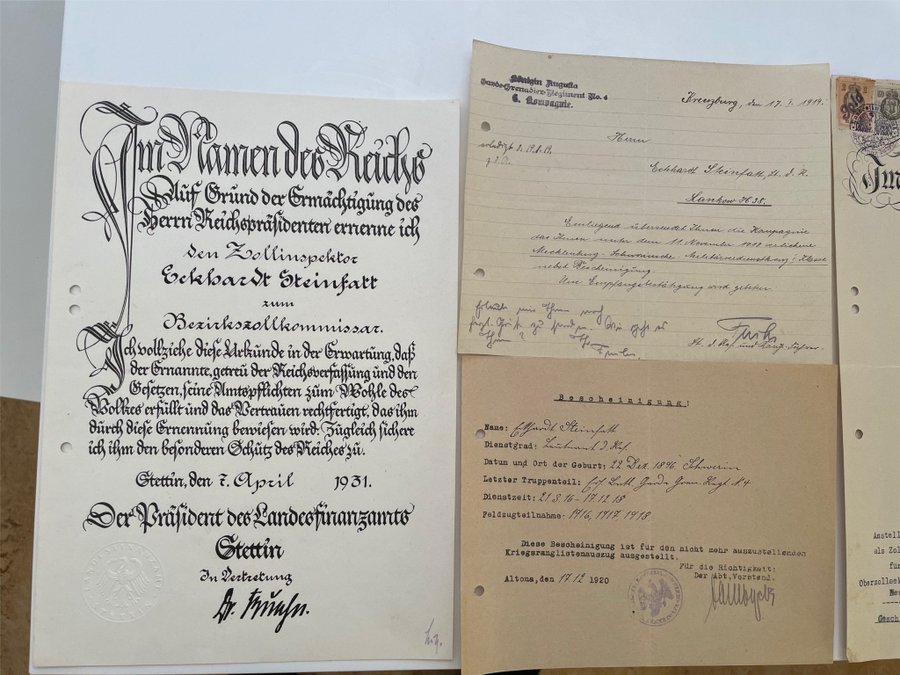 Im Namen des Reichs
Auf Grund der Ermächtigung des
Herrn Reichspräsidenten ernenne ich
den Zollinspektor
Eckhardt Steinfatt
zum
Bezirkszollkommissar.
Ich vollziehe diese Urkunde in der Erwartung, daß
der Ernannte, getreu der Reichsverfassung und den
Gesetzen, seine Amtspflichten zum Wohle des
Volkes erfüllt und das Vertrauen rechtfertigt, das ihm
durch diese Ernennung bewiesen wird. Zugleich sichere
ich ihm den besonderen Schutz des Reiches zu.
Stettin, den 7. April 1931.
Der Präsident des Landesfinanzamts
Stettin
In Vertretung
Dr.
Königin Augusta
Garde-Grenadier-Regiment No. 4
6. Kompagnie.
Kreuzburg, den 17. 1919.
Herrn
Eckhardt Steinfatt, Lt. d. R.
Einliegend übersendet Ihnen die Kompagnie
das Ihnen unter dem 11. November 1918 verliehene
Mecklenburg-Schwerinsche Militärverdienstkreuz Klasse
nebst Bescheinigung.
Um Empfangsbestätigung wird gebeten.
Lt. d. Res. und Komp. Führer.
Bescheinigung!
Name: Eckhardt Steinfatt
Dienstgrad: Leutnant d. Res.
Datum und Ort der Geburt: 22 Dez. 1896 Schwerin
Letzter Truppenteil: Gren. Regt. N. 4
Dienstzeit: 21.3.16 - 17.12.18
Feldzugteilnahme: 1916, 1917, 1918.
Diese Bescheinigung ist für den nicht mehr auszustellenden
Kriegsranglistenauszug ausgestellt.
Für die Richtigkeit:
Der Abt. Vorstand.
Altona, den 17.12 1920
Im
Anstell
als Zol
fü
Oberzollsek
Ne
Gesch